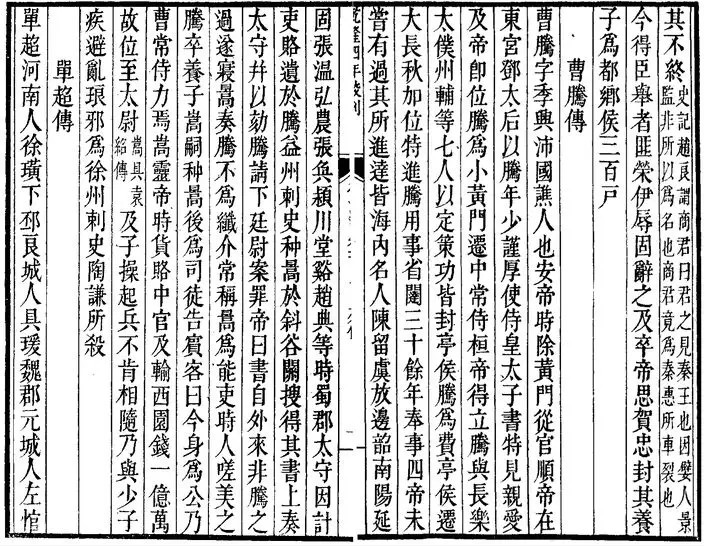 其不終史記趙良謂商君曰君之見秦王也因嬖人景
監非所以為名也商君竟為秦惠所車裂也
今得臣舉者匪榮伊辱固辭之及卒帝思賀忠封其養
子為都鄉侯三百戸
曹騰傳
曹騰字季興沛國譙人也安帝時除黃門從官順帝在
東宮鄧太后以騰年少謹厚使侍皇太子書特見親愛
及帝卽位騰為小黃門遷中常侍桓帝得立騰與長樂
太僕州輔等七人以定策功皆封亭侯騰為費亭侯遷
大長秋加位特進騰用事省闥三十餘年奉事四帝未
嘗有過其所進達皆海內名人陳留虞放邊韶南陽延
乾隆四年校刊
固張溫弘農張奐潁川堂谿趙典等時蜀郡太守因計
吏賂遺於騰益州刺史种暠於斜谷關搜得其書上奏
太守幷以劾騰請下廷尉案罪帝曰書自外來非騰之
過遂寢暠奏騰不為纖介常稱暠為能吏時人嗟美之
騰卒養子嵩嗣种暠後為司徒告賓客曰今身為公乃
曹常侍力焉嵩靈帝時貨賂中官及輸西園錢一億萬
故位至太尉嵩具袁
紹傳及子操起兵不肯相隨乃與少子
疾避亂琅邪為徐州刺史陶謙所殺
單超傳
單超河南人徐璜下邳良城人具瑗魏郡元城人左悺